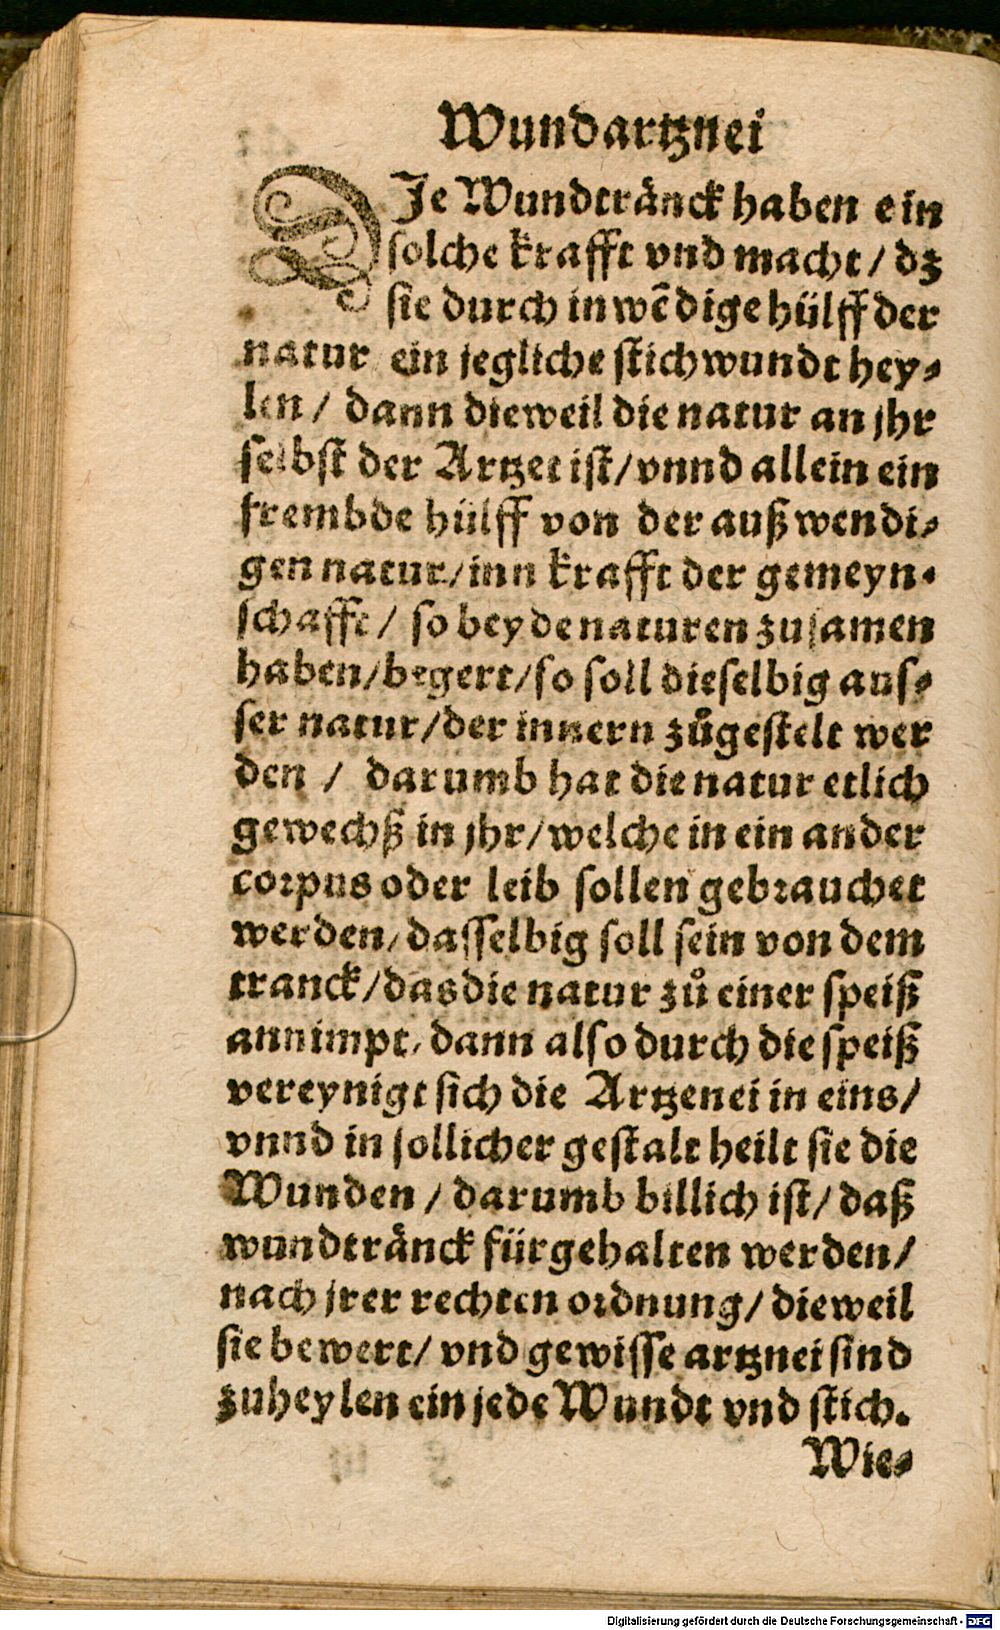 Wundartznei
DJe Wundtränck haben ein
solche krafft vnd macht / dz
sie durch inwēdige hülff der
natur ein jegliche stichwundt hey-
len / dann dieweil die natur an jhr
selbst der Artzet ist/vnnd allein ein
frembde hülff von der außwendi-
gen natur/inn krafft der gemeyn-
schafft/ so beyde naturen zusamen
haben/begert/so soll dieselbig aus-
ser natur/der innern zůgestelt wer
den / darumb hat die natur etlich
gewechß in jhr/welche in ein ander
corpus oder leib sollen gebrauchet
werden/dasselbig soll sein von dem
tranck/das die natur zů einer speiß
annimpt/dann also durch die speiß
vereynigt sich die Artzenei in eins/
vnnd in sollicher gestalt heilt sie die
Wunden / darumb billich ist/ daß
wundtränck fürgehalten werden/
nach jrer rechten ordnung/ dieweil
sie bewert/ vnd gewisse artznei sind
zuheylen ein jede Wundt vnd stich.
Wie-
Digitalisierung gefördert durch die Deutsche Forschungsgemeinschaft - DFG